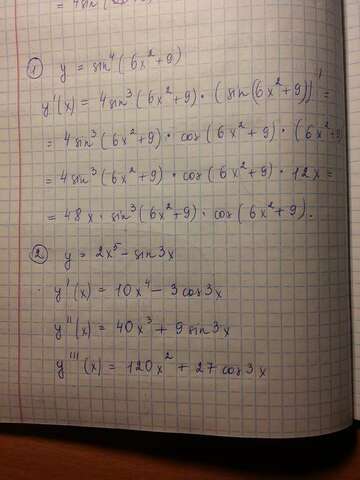 ① y = sin⁴(6x²+9)
y'(x) = 4sin³(6x²+9)·(sin(6x²+9))' =
= 4sin³(6x²+9)·cos(6x²+9)·(6x²+9
= 4sin³(6x²+9)·cos(6x²+9)·12x =
= 48x·sin³(6x²+9)·cos(6x²+9).
② y = 2x⁵ - sin3x
y'(x) = 10x⁴ - 3cos3x
y''(x) = 40x³ + 9sin3x
y'''(x) = 120x² + 27cos3x